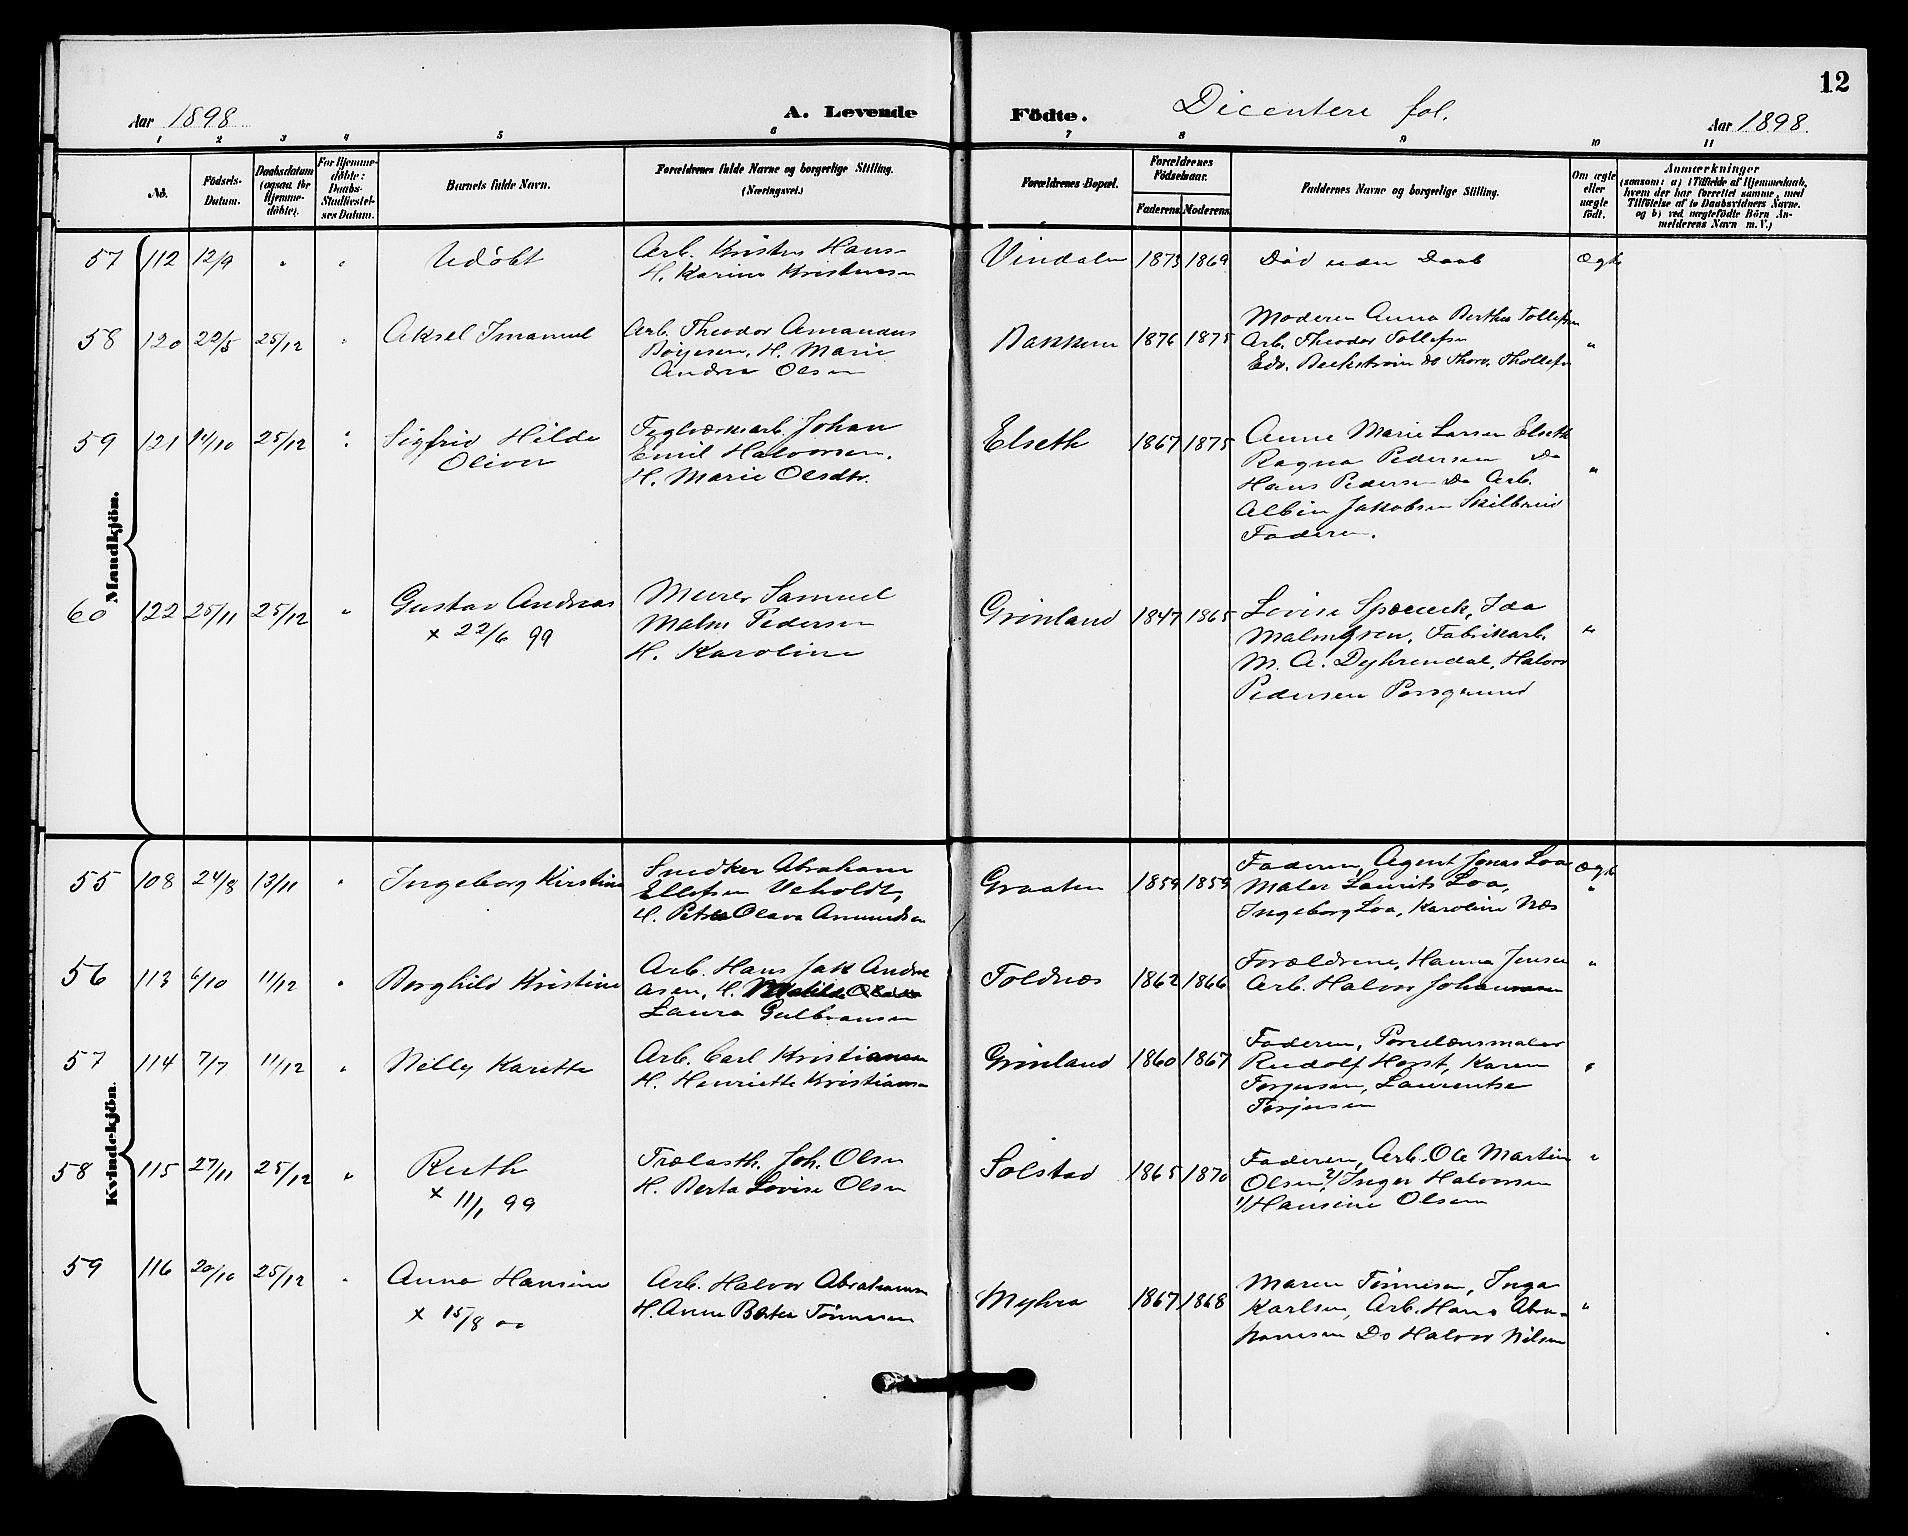 12
Aar 1898
A. Levende
Födte.
Dicentere fol.
Aar 1898.
1 2 3 4 5 6 7 8 9 10 11
No.
Födsels-
Datum.
Daabsdatum
(ogsaa for
Hjemme-
döbte).
For Hjemme-
döbte:
Daabs-
Stadfæstel-
ses Datum.
Barnets fulde Navn.
Forældrenes fulde Navne og borgerlige Stilling.
(Næringsvei.)
Forældrenes Bopæl.
Forældrenes
Födselsaar.
Faderens Moderens
Faddernes Navne og borgerlige Stilling.
Om ægte
eller
uægte
født.
Anmærkninger
(saasom: a) i Tilfælde af Hjemmedaab,
hvem der har forrettet samme, med
Tilföielse af to Daabsvidners Navne.
og b) ved uægtefödte Börn An-
melderens Navn m. V.)
Mandkjön.
57 112 12/9 " " Udöbt
Arb. Kristen Hans-
H. Karine Kristensen
Vindalen 1873 1869 Död uden Daab Ægte
58 120 22/5 25/12 " Aksel Imanuel
Arb. Theodor Amandus
Börjesen, H. Marie
Andrea Olsen
Bakken 1876 1875
Moderen Anna Berthea Tollefsen
Arb. Theodor Tollefsen
Edv. Beckström Do Thorv. Thollefsen
"
59 121 14/10 25/12 " Sigfrid Hilde
Oliver
Teglværksarb. Johan
Emil Halvorsen.
H. Marie Olsdtr.
Elseth 1867 1875
Anne Marie Larsen Elseth
Ragna Pedersen Do
Hans Pedersen Do Arb.
Albin Jakobsen Skilbred
Faderen.
"
60 122 25/11 25/12 " Gustav Andreas
x 22/6 99
Murer Samuel
Malm Pedersen
H. Karoline
Grönland 1847 1865
Lovise Ida
Malmgren, Fabrikarb.
M. A. Dyhrendal, Halvor
Pedersen Porsgrund
"
Kvindekjön.
55 108 24/8 13/11 " Ingeborg Kirstine
Snedker Abraham
Ellefsen Ueholdt,
H. Petra Olava Amundsen
Graaten 1859 1859
Faderen, Agent Jonas Loa
Maler Laurits Loa,
Ingeborg Loa, Karoline Næs
Ægte
"
56 113 6/10 11/12 " Borghild Kristine
Arb. Hans Jak Andre
asen, H.
Laura Gulbransen
Toldnæs 1862 1866
Forældrene, Hanna Jensen
Arb. Halvor Johannesen
"
57 114 7/7 11/12 " Nelly Karette
Arb. Carl Kristiansen
H. Henriette Kristiansen
Grönland 1860 1867
Faderen, Porcelænsmaler
Rudolf Horst, Karen
Torjusen, Laurentse
Torjusen
"
58 115 27/11 25/12 " Ruth
x 11/1 99
Trælasth. Joh. Olsen
H. Berta Lovise Olsen
Solstad 1865 1870
Faderen, Arb. Ole Martin
Olsen, 2/ Inger Halvorsen
1/ Hansine Olsen
"
59 116 20/10 25/12 " Anna Hansine
x 15/8 00
Arb. Halvor Abrahamsen
H. Anne Bertea Tönnesen
Myhra 1867 1868
Maren Tönnesen, Inga
Karlsen, Arb. Hans Abra-
hamsen Do Halvor Nilsen
"